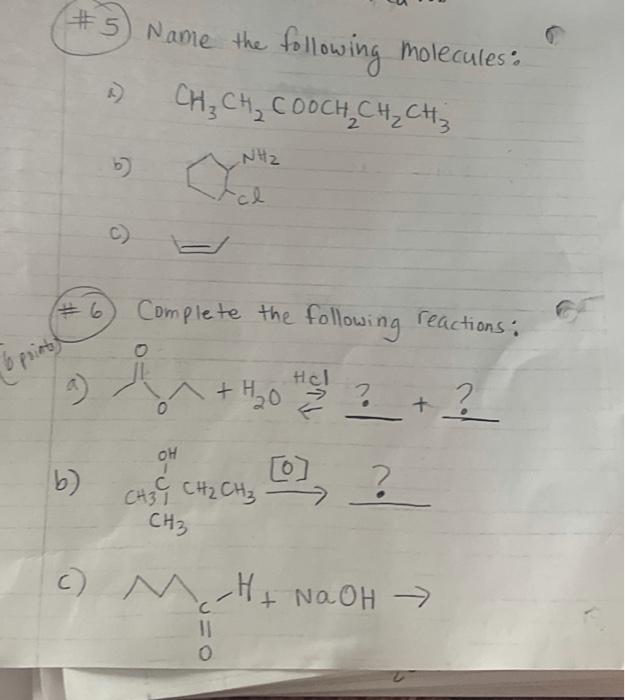 #5 Name the following molecules:
a) CH3CH2COOCH2CH2CH3
b) NH2
Cl
c)
#6 Complete the following reactions:
(6 points)
a) O
O + H2O HCl ⇌ ? + ?
b) OH
CH3 C CH2CH3 [O] → ?
CH3
c) C-H + NaOH →
O